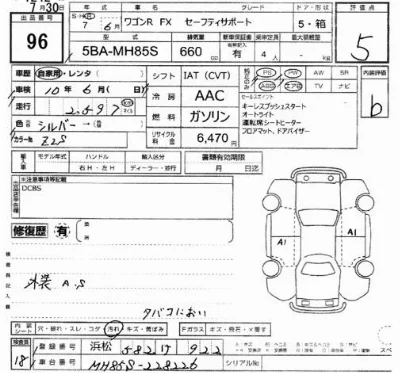 7月30日
出品番号
96
年式
車名
グレード
ドア・形状
評価点
7年 6月
ワゴンR FX セーフティサポート
5・箱
5BA-MH85S
排気量
660
有
4
人
5
車歴
自家用・レンタ
シフト
IAT (CVT)
PS
PW
AW
SR
内装評価
車検
10年 6月
冷房
AAC
ABS
エアB
TV
ナビ
b
走行
2,597
燃料
ガソリン
セールスポイント
キーレスプッシュスタート
オートライト
運転席シートヒーター
フロアマット、ドアバイザー
色
シルバー
カラーNo.
Z2S
リサイクル料金
6,470円
輸入車
モデル年式
ハンドル
右H・左H
輸入区分
ディーラー・並行
書類有効期限
月 日迄
※注意事項等記載
DCBS
修復歴
有
外装 A.S
タバコにおい
A1
A1
内装
シート
穴・破れ・スレ・コゲ・汚れ・キズ・黄ばみ
Fガラス
キズ・飛石・×要す
検査員
18
登録番号
浜松 582 け 922
車台番号
MH85S-228226
シリアルNo.